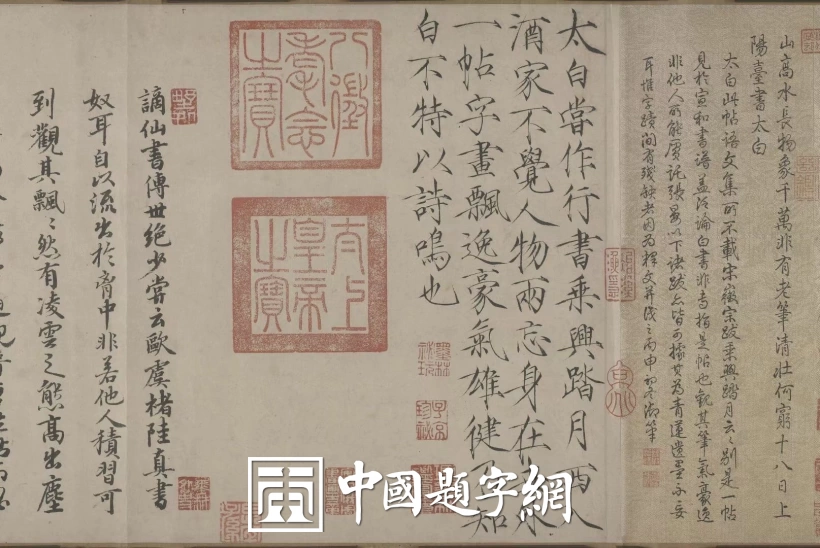 山高水長物象千萬非有老筆清壯何窮十八日上
陽臺書太白
太白此帖語文集所不載宋徽宗跋乘興踏月云云別是一帖
見於宣和書譜蓋泛論白書非專指是帖也觀其筆氣豪逸
非他人所能贋託張晏以下諸跋亦皆可據其為青蓮遺墨
耳惟字蹟間有殘缺者因為釋文并識之丙申初冬御筆
太白嘗作行書乘興踏月西入
酒家不覺人物兩忘身在
一帖字畫飄逸豪氣雄健乃知
白不特以詩鳴也
八徵耄念之寶
太上皇帝之寶
謫仙書傳世絶少嘗云歐虞褚陸真書
奴耳自以流出於胷中非若他人積習可
到觀其飄〻然有凌雲之態高出塵
中國題字網